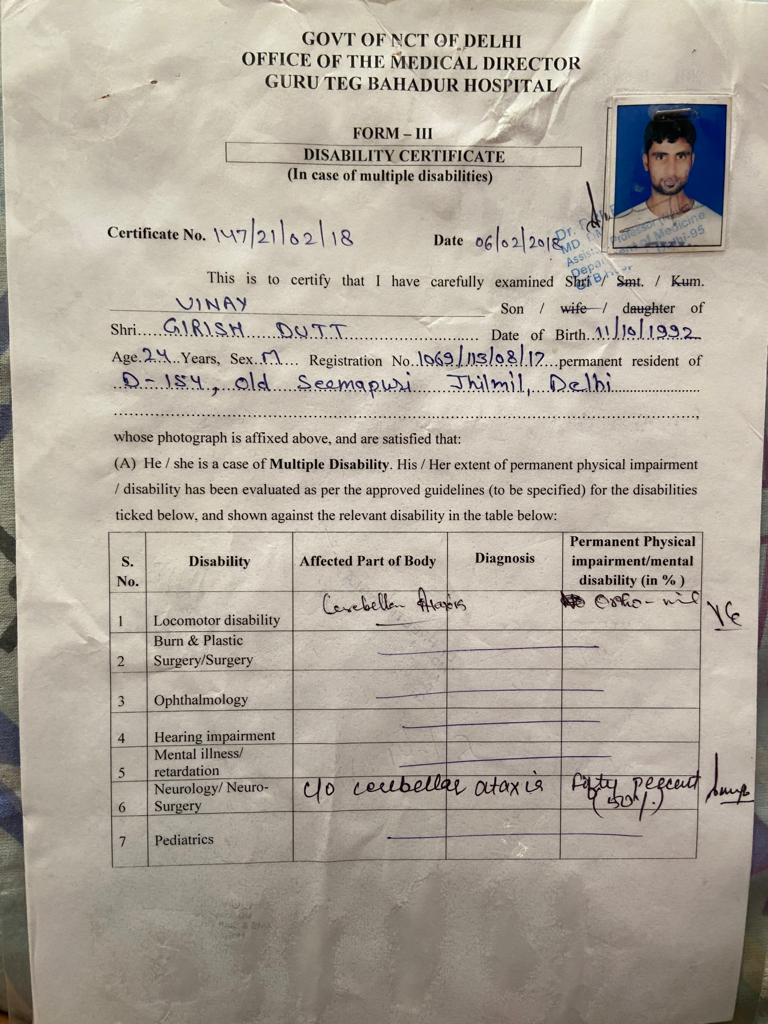 GOVT OF NCT OF DELHI
OFFICE OF THE MEDICAL DIRECTOR
GURU TEG BAHADUR HOSPITAL
FORM – III
DISABILITY CERTIFICATE
(In case of multiple disabilities)
Certificate No. 147/21/02/18 Date 06/02/2018
Dr.
MD
Professor
Assis of Medicine
Depa lhi-95
This is to certify that I have carefully examined Shri / Smt. / Kum.
VINAY Son / wife / daughter of
Shri.....GIRISH DUTT........................... Date of Birth.11/10/1992
Age.24..Years, Sex.M.... Registration No.1069/113/08/17..permanent resident of
D-154, Old Seemapuri Jhilmil, Delhi
whose photograph is affixed above, and are satisfied that:
(A) He / she is a case of Multiple Disability. His / Her extent of permanent physical impairment
/ disability has been evaluated as per the approved guidelines (to be specified) for the disabilities
ticked below, and shown against the relevant disability in the table below:
S. No. Disability Affected Part of Body Diagnosis Permanent Physical impairment/mental disability (in % )
1 Locomotor disability Cerebellar Ataxia Ortho-nil
2 Burn & Plastic Surgery/Surgery
3 Ophthalmology
4 Hearing impairment
5 Mental illness/ retardation
6 Neurology/ Neuro-Surgery c/o cerebellar ataxia fifty percent (50%.)
7 Pediatrics